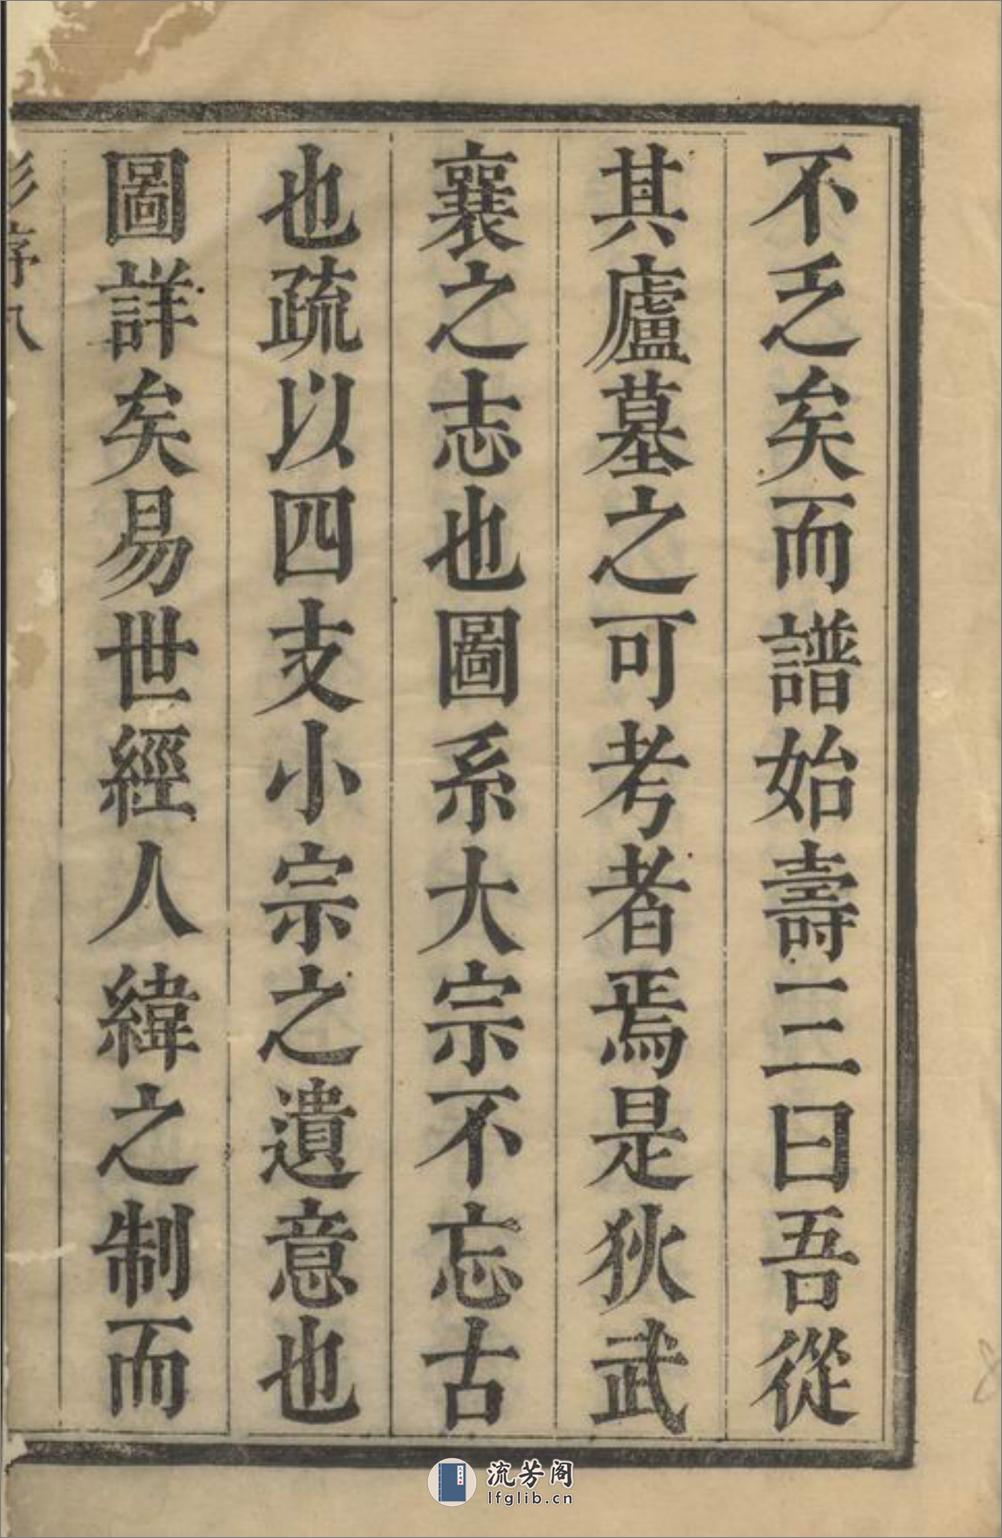 不乏矣而譜始壽二三曰吾從
其廬墓之可考者焉是狄武
襄之志也圖系大宗不忘古
也疏以四支小宗之遺意也
圖詳矣易世經人緯之制而
序八
流芳阁
lfglib.cn